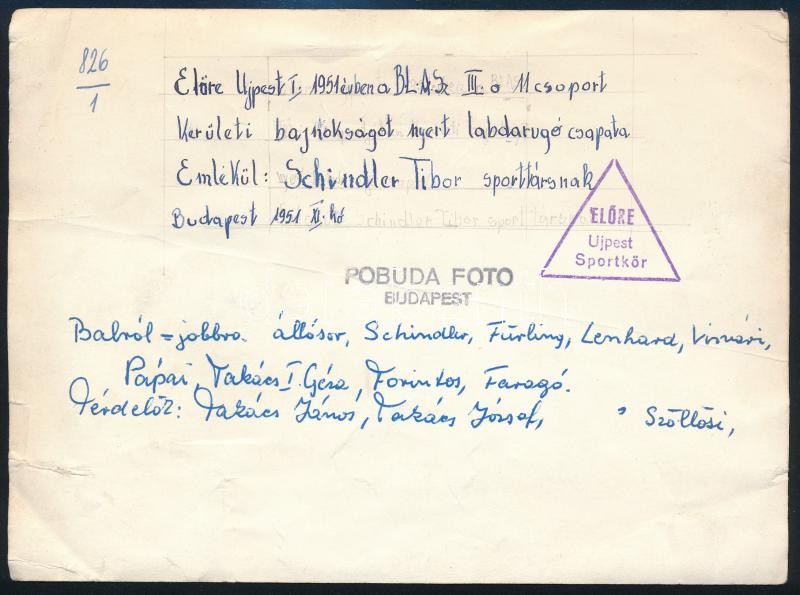 826
1
Előre Ujpest I. 1951 évben a BLASz III. o 11 csoport
Kerületi bajnokságot nyert labdarugó csapata
Emlékül: Schindler Tibor sporttársnak
Budapest 1951 XI. hó
ELŐRE
Ujpest
Sportkör
POBUDA FOTO
BUDAPEST
Balról = jobbra. állósor, Schindler, Fürling, Lenhard, Visvári,
Pápai, Takács I. Géza, Forintos, Faragó.
Térdelők: Takács János, Takács József, Szöllősi,